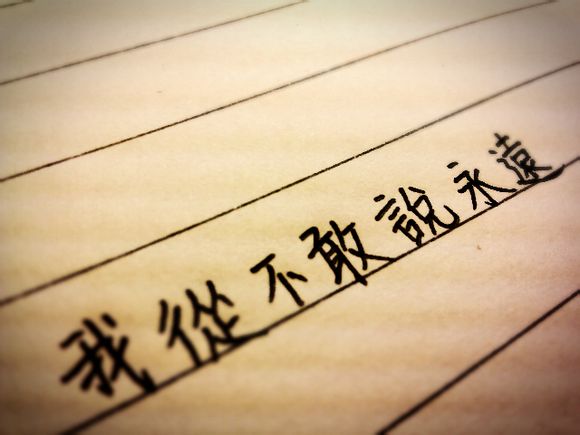 我從不敢說永遠